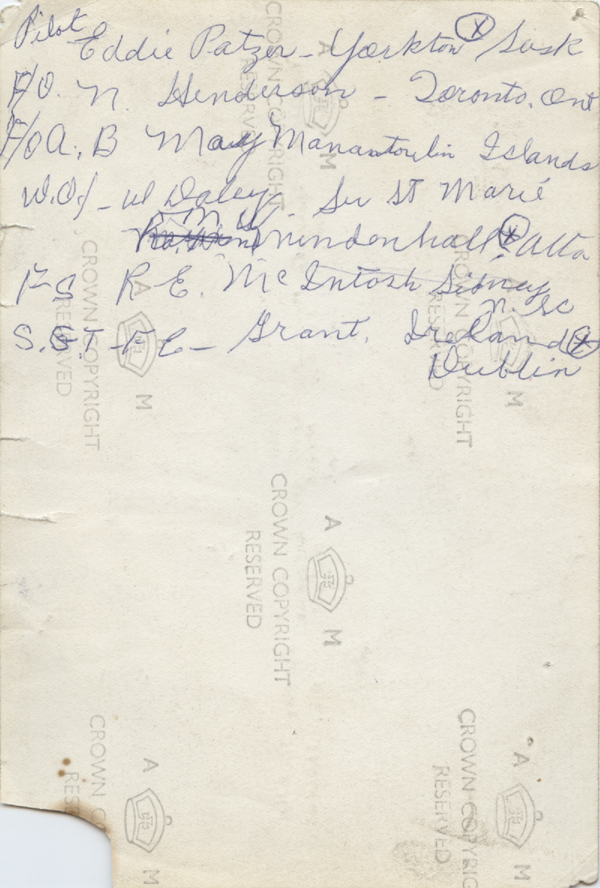 Pilot Eddie Patzer - Yorkton X Sask
F/O. N. Henderson - Toronto. Ont
F/O A. B May Manantoulin Islands
W.O/- W Daley - Su St Marié
M indenhall X Alta
F-S R E. McIntosh Sidney
N. SC
S.G.T - F E - Grant. Ireland X
Dublin
CROWN COPYRIGHT
RESERVED
A M
CROWN COPYRIGHT
RESERVED
A M
CROWN COPYRIGHT
RESERVED
A M
CROWN COPYRIGHT
RESERVED
A M
CROWN C
RES
A M
CROWN COPYRIG
RESERVED
A M